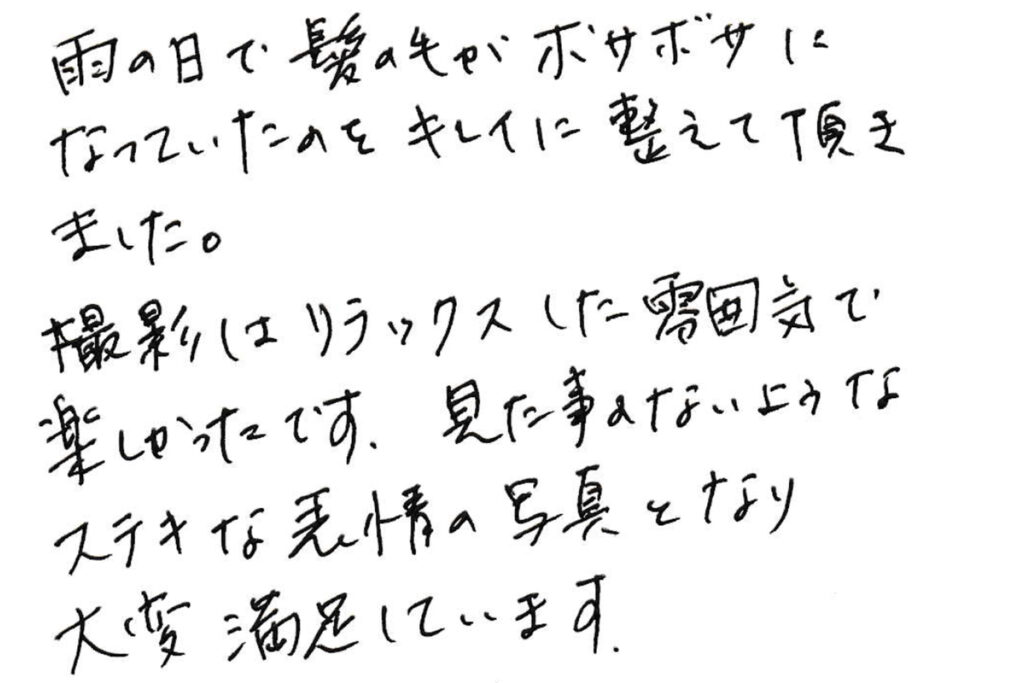 雨の日で髪の毛がボサボサに
なっていたのをキレイに整えて頂き
ました。
撮影はリラックスした雰囲気で
楽しかったです. 見た事のないような
ステキな表情の写真となり
大変満足しています.